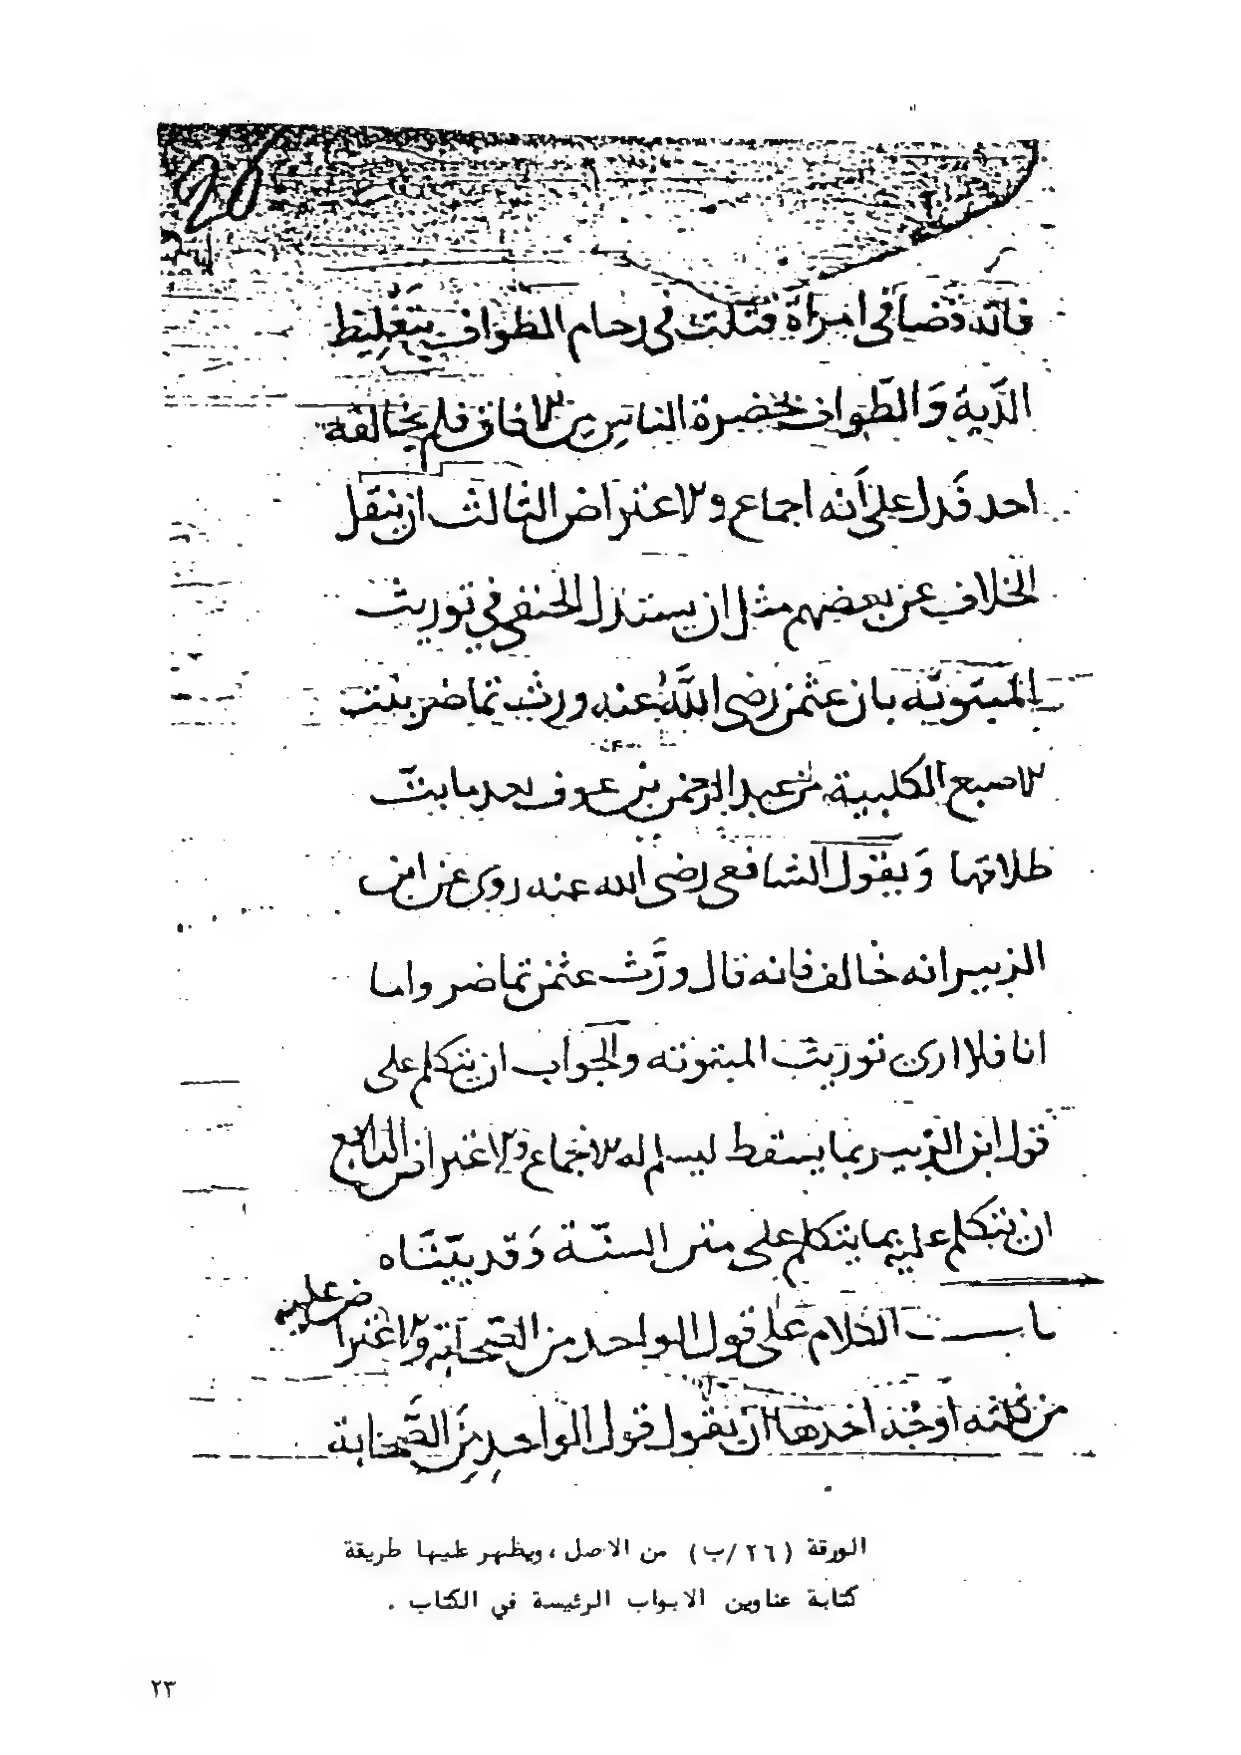 26
فانه قضا في امراة قتلت في زحام الطواف بتغليظ
الدّية وَالطّواف يحضره الناس من الافاق فلم يخالفه
احد فَدل على أنه اجماع والاعتراض الثالث ان ينقل
الخلاف عن بعضهم مثل ان يستدل الحنفي في توريث
المبتوتة بان عثمن رضي اللهُ عنه ورث تماضر بنت
الاصبع الكلبية من عبد الرحمن بن عوف بعد ما بتّ
طلاقها وَيقول الشافعي رضي الله عنه روى عن ابن
الزبير انه خالف فانه قال ورَّث عثمن تماضر واما
انا فلا ارى توريث المبتوته والجواب ان يتكلم على
قول ابن الزبير بما يسقط ليسلم له الاجماع والاعتراض الرابع
ان يتكلم عليه بما يتكلم على متن السنّة وَقد بيّنّاه
باب الكلام على قول الواحد من الصّحابة والاعتراض عليه
من ثلثه اوجه احدها ان يقول قول الواحد مِنَ الصَّحابة
الورقة (٢٦/ب) من الاصل، ويظهر عليها طريقة
كتابة عناوين الابواب الرئيسة في الكتاب .
٢٣